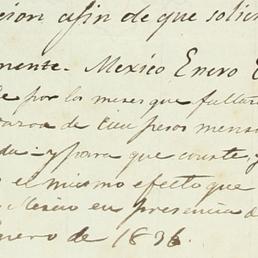 cion afin de que solici
nente. Mexico Enero
e por los meses que falta
de Cien pesos mens
da: y para que conste, y
el mismo efecto que
Mexico en presencia d
Enero de 1836.